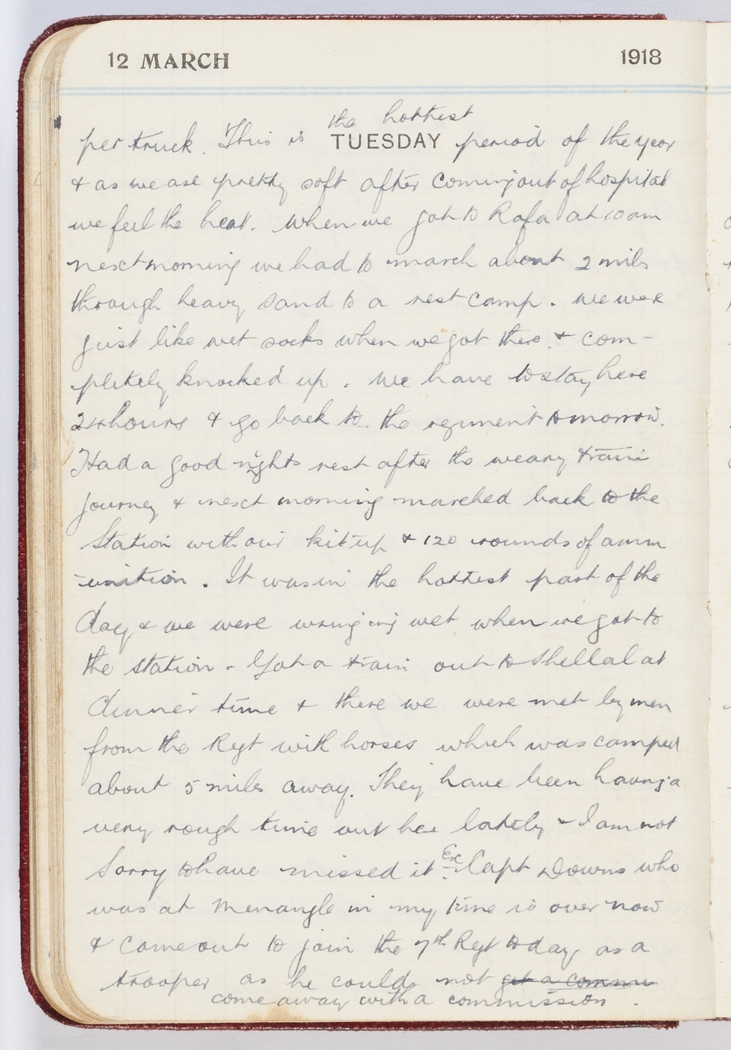 12 MARCH 1918
the hottest
per truck. This is TUESDAY period of the year
& as we are pretty soft after coming out of hospital
we feel the heat. When we got to Rafa at 10 am
next morning we had to march about 2 miles
through heavy sand to a rest camp. We were
just like wet socks when we got there & com-
pletely knocked up. We have to stay here
24 hours & go back to the regiment tomorrow.
Had a good nights rest after the weary train
journey & next morning marched back to the
Station with our kit up & 120 rounds of amm
-unition. It was in the hottest part of the
day & we were wringing wet when we got to
the station - Got a train out to Shellal at
dinner time & there we were met by men
from the Regt with horses which was camped
about 5 miles away. They have been having a
very rough time out here lately & I am not
Sorry to have missed it. Ex Capt Downs who
was at Menangle in my time is over now
& came out to join the 7th Regt today as a
trooper as he could not get a commn
come away with a commission.